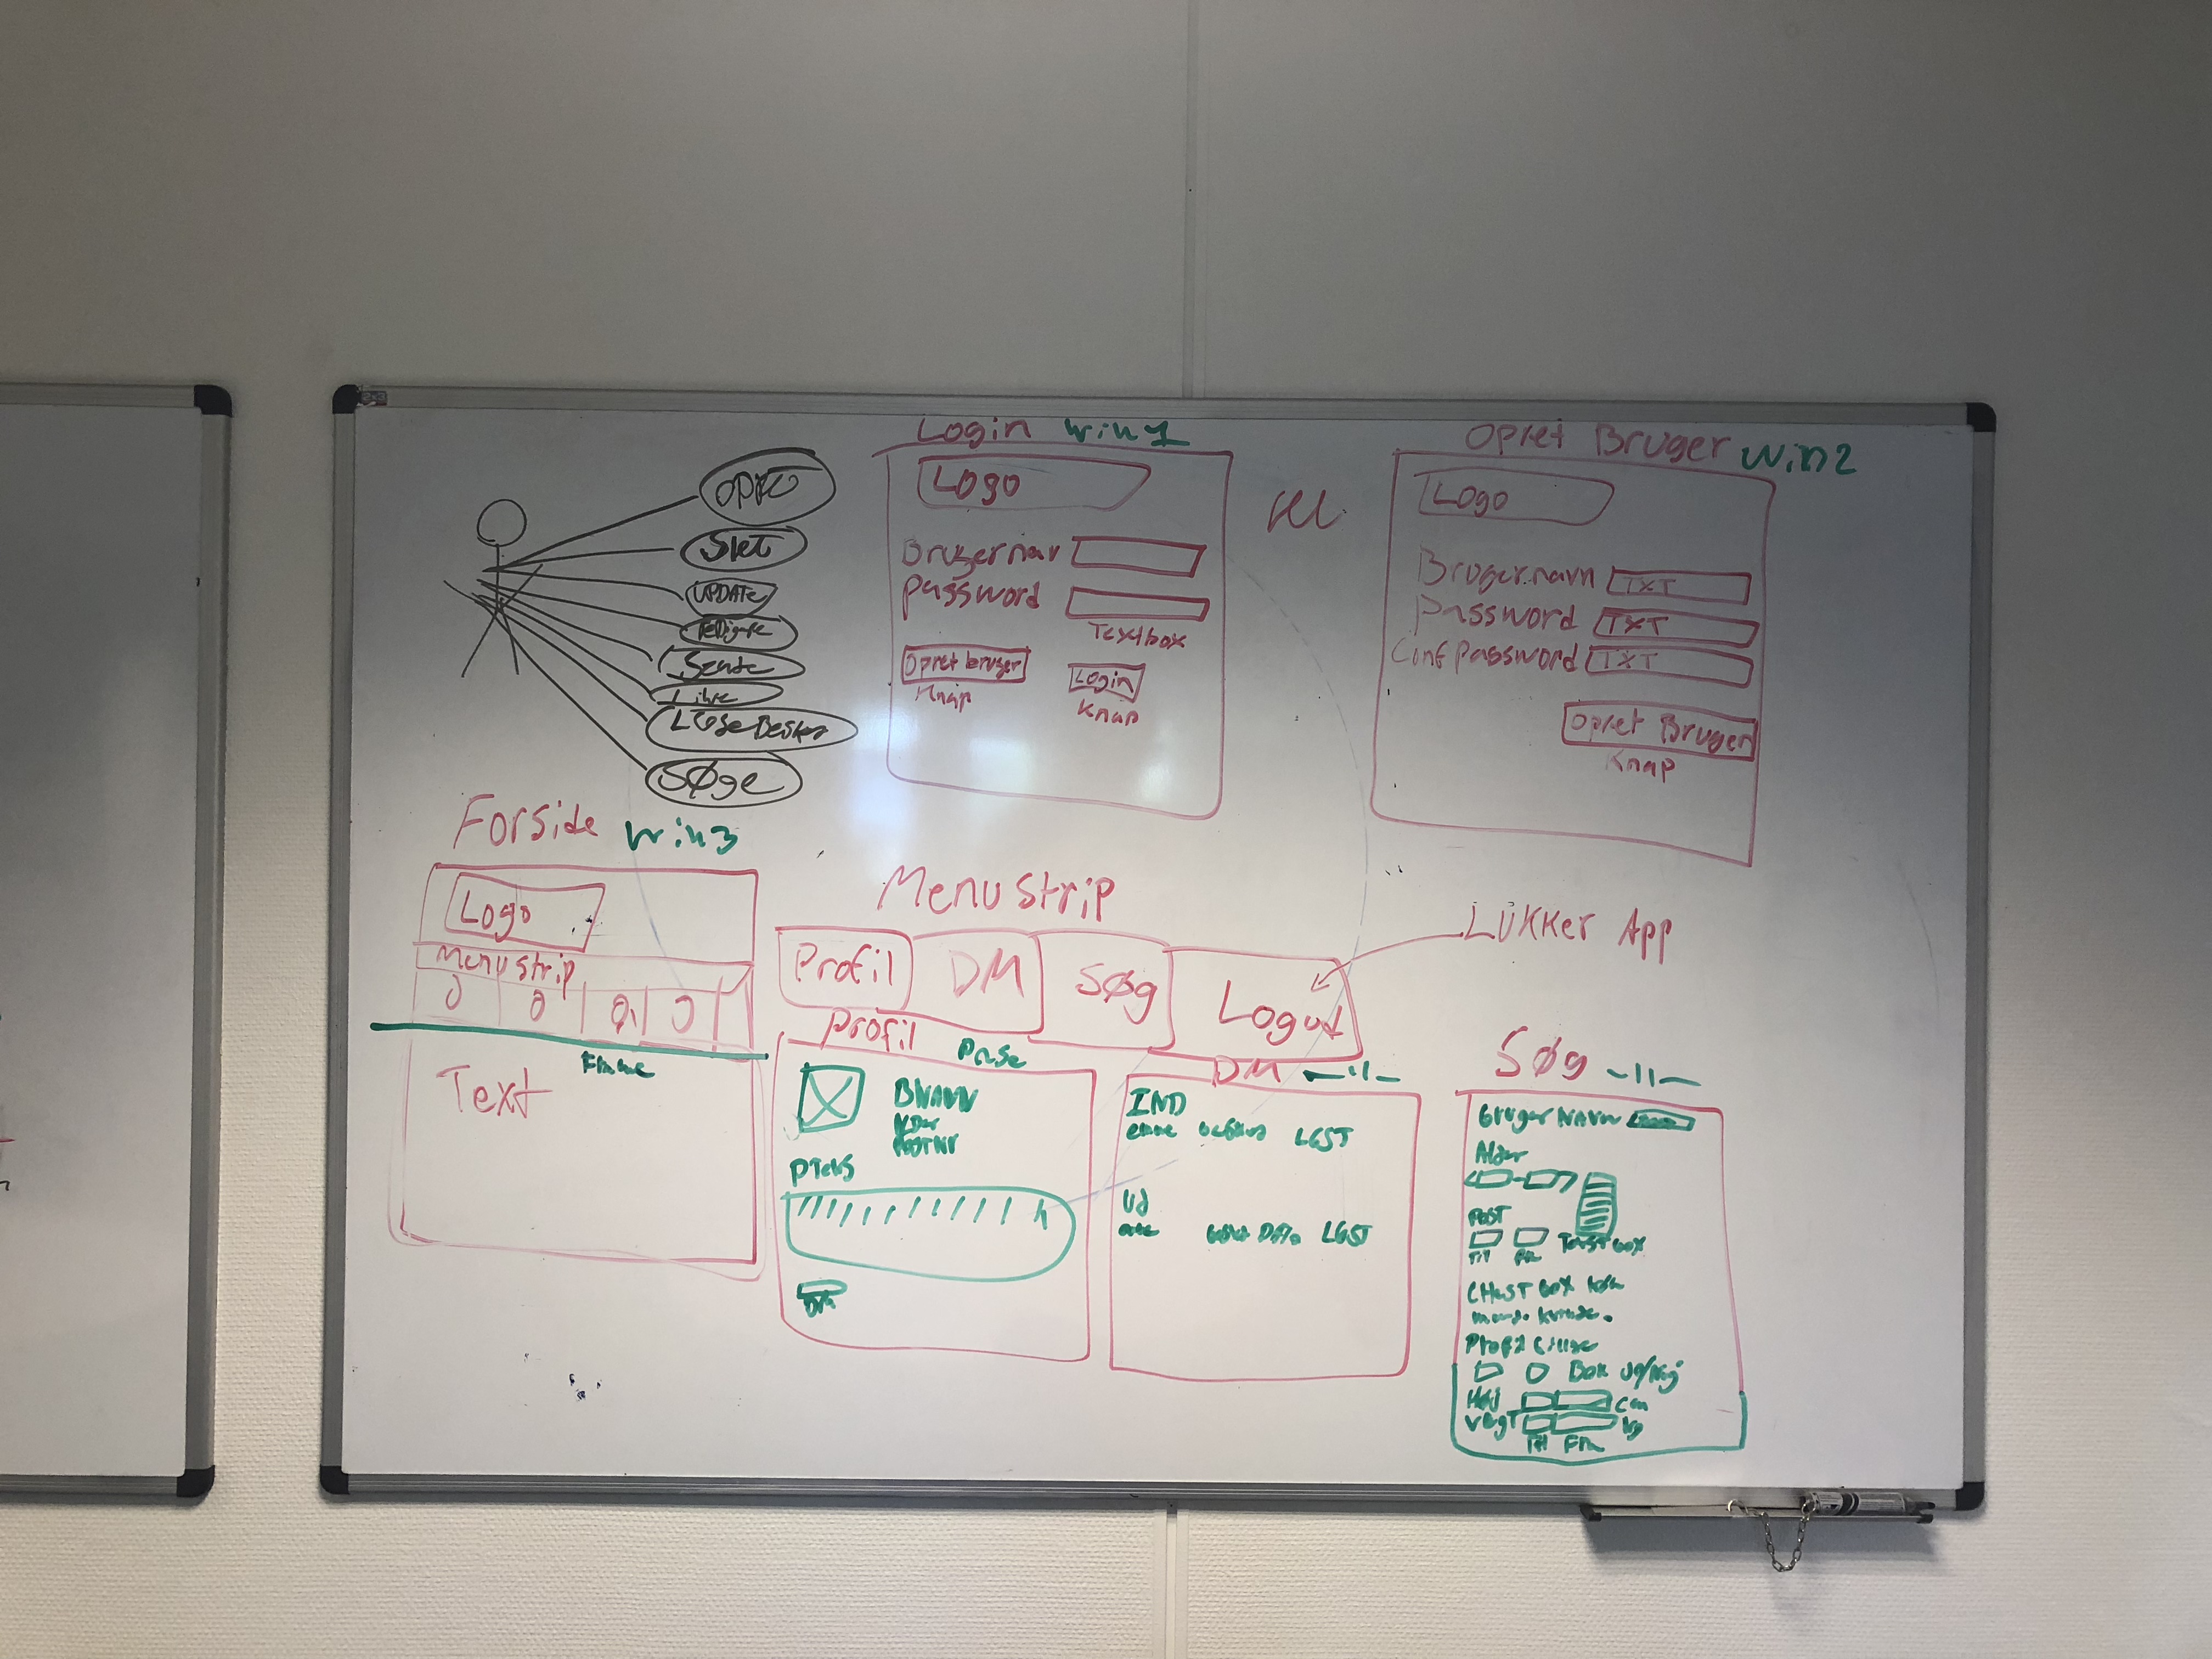 Opret
Slet
UPDATE
Redigere
Sende
Like
Læse Besked
Søge
Login Win1
Logo
Brugernav
Password
Textbox
Opret bruger
Knap
Login
Knap
Opret Bruger Win2
Logo
Brugernavn TXT
Password TXT
Conf Password TXT
Opret Bruger
Knap
Forside Win3
Logo
Menu strip
Frame
Text
Menu strip
Profil
DM
Søg
Logud
LUKKER App
Profil
BNAVN
Alder
POSTNR
DM
DM -11-
IND
emne LÆST
Ud
emne Dato LÆST
Søg -11-
Bruger NAVN
Alder
POST
Til FRA
box
mand. kvinde.
Profil
Box JA/Nej
Høj cm
VÆGT kg
Til FRA